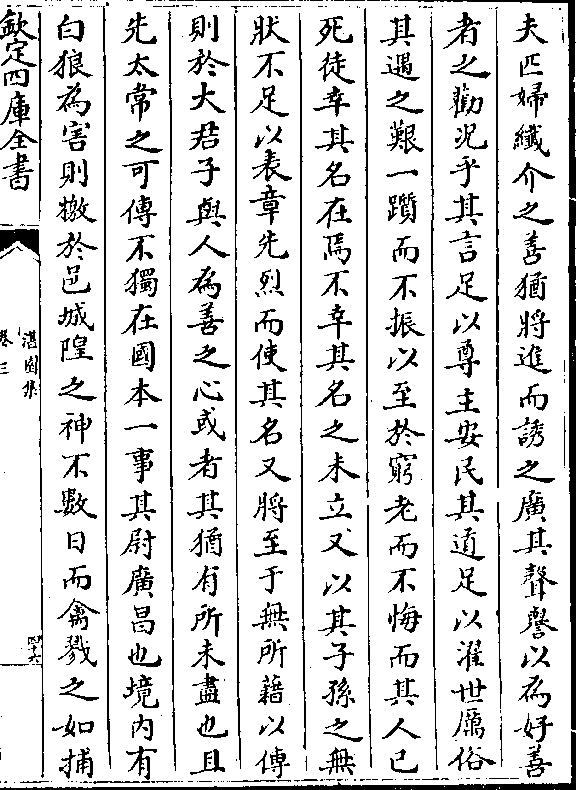 夫匹婦纖介之善猶將進而誘之廣其聲譽以為好善
者之勸况乎其言足以尊主安民其道足以淮世厲俗
其遇之艱一躓而不振以至於窮老而不悔而其人已
死徒幸其名在焉不幸其名之未立又以其子孫之無
狀不足以表章先烈而使其名又將至于無所藉以傳
則於大君子與人為善之心或者其猶有所未盡也且
先太常之可傳不獨在國本一事其尉廣昌也境内有
白狼為害則檄於邑城隍之神不數日而禽戮之如捕
欽定四庫全書
湛園集
卷三
四十六